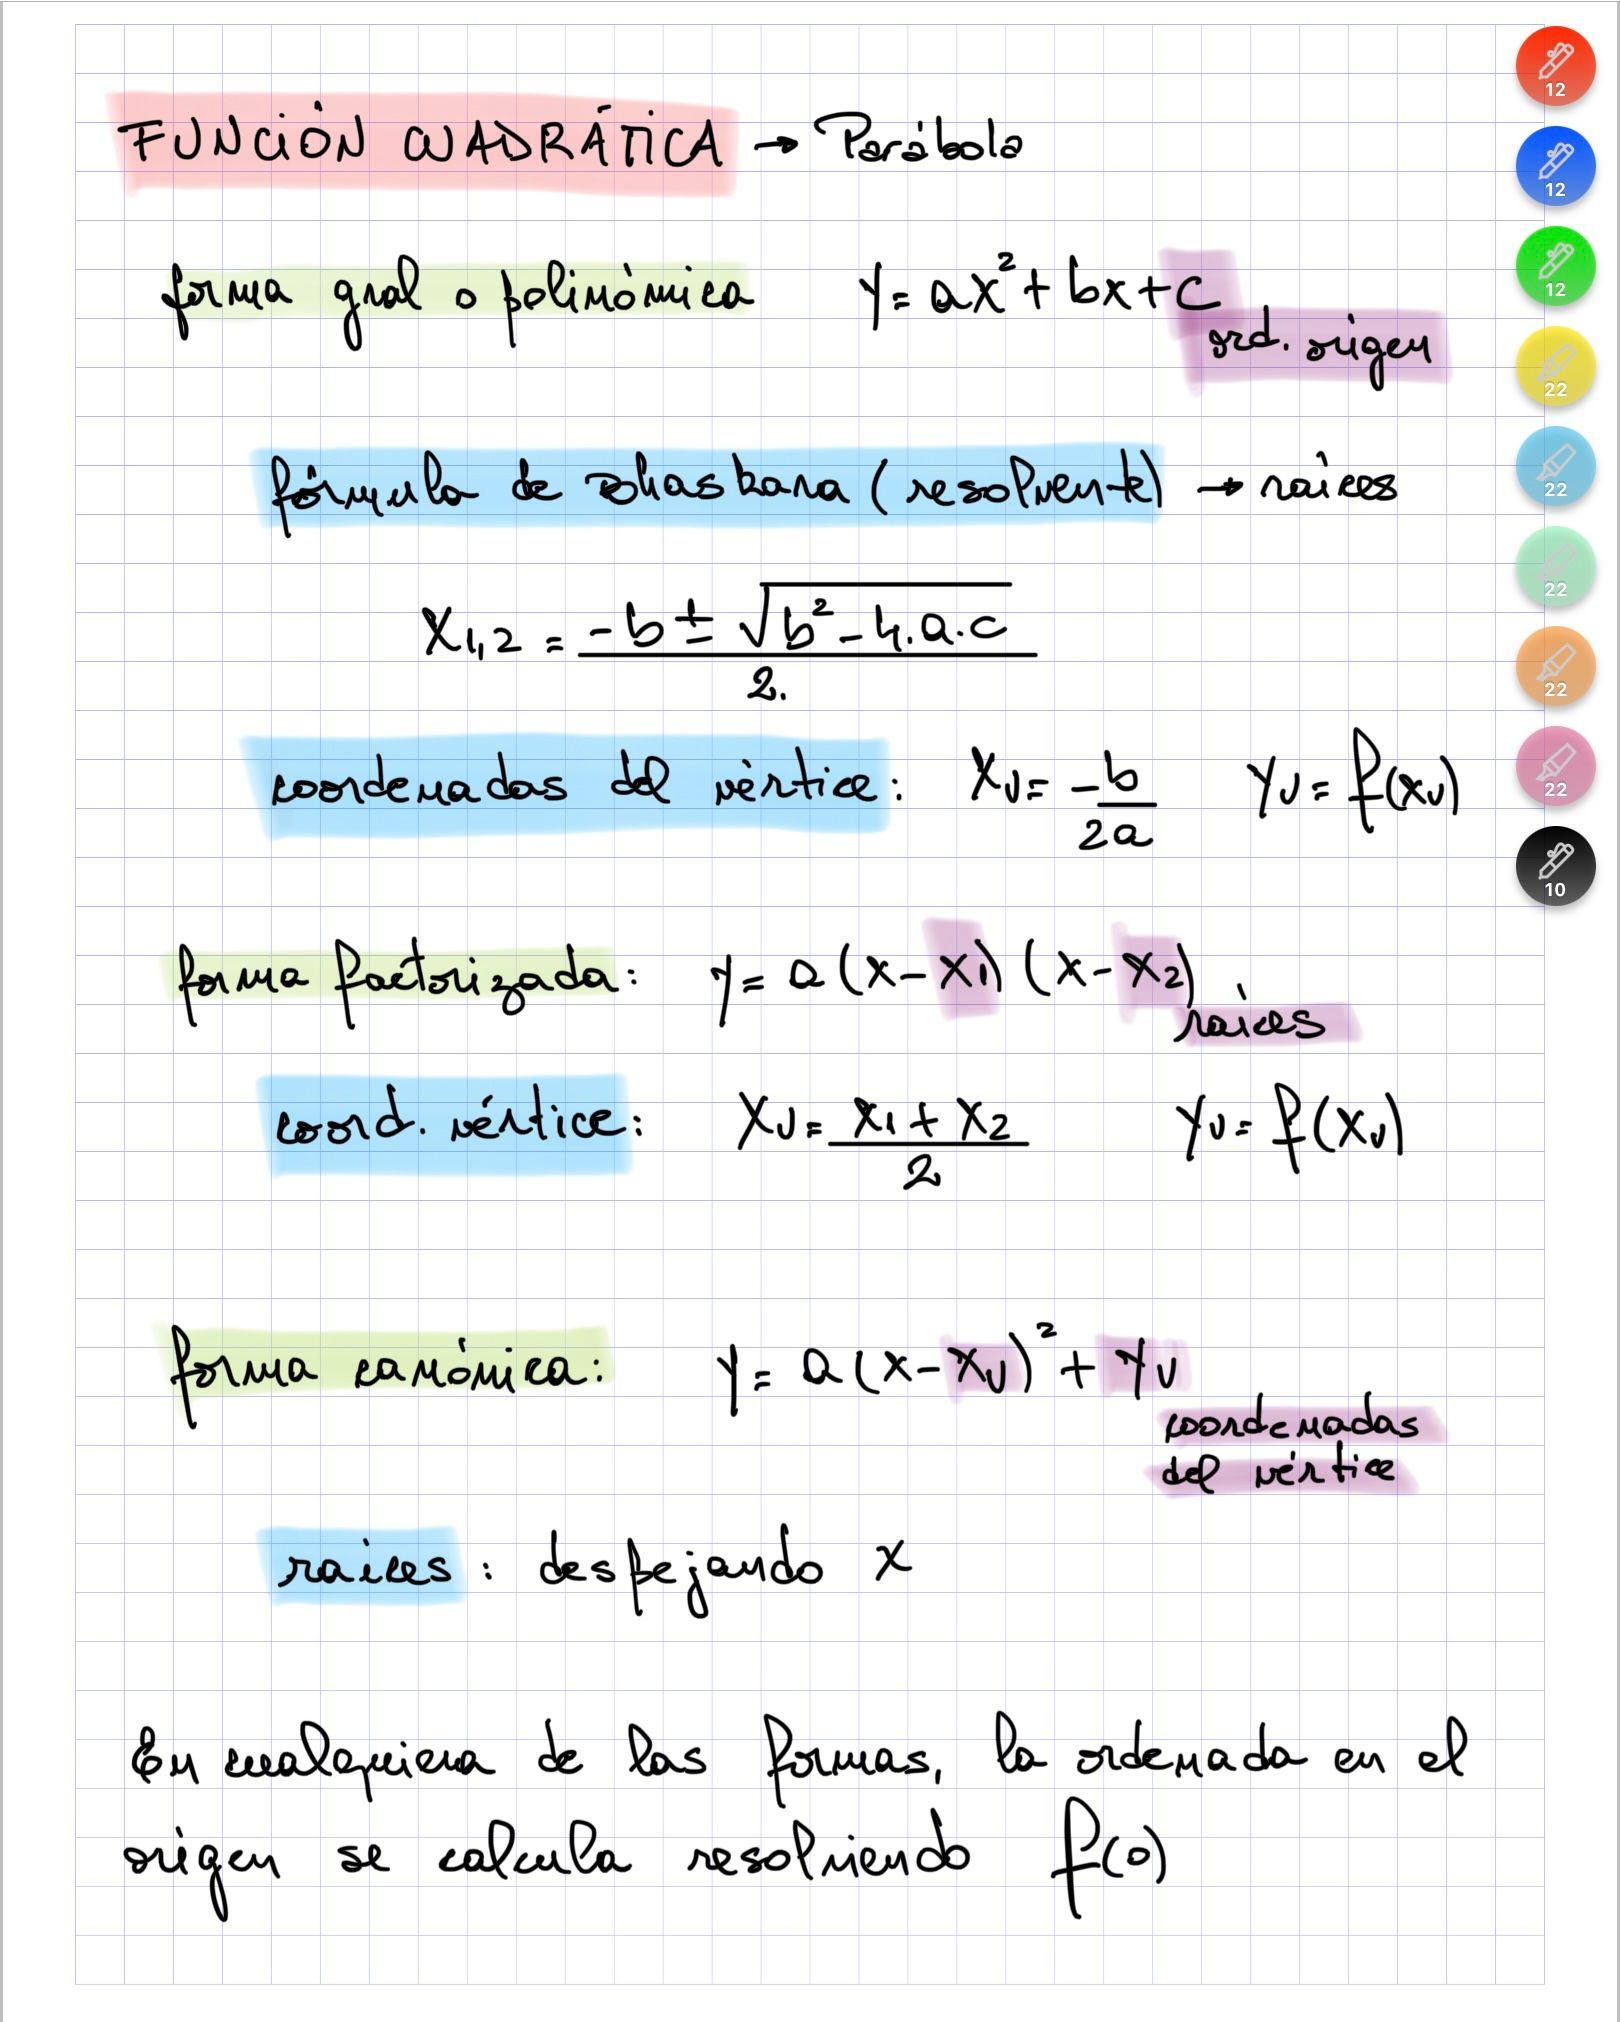 FUNCIÓN CUADRÁTICA → Parábola
forma gral o polinómica y = ax² + bx + c
ord. origen
fórmula de Bhaskara (resolvente) → raíces
X1,2 = -b ± √b² - 4.a.c
2.
coordenadas del vértice: Xv = -b/2a yv = f(xv)
forma factorizada: y = a (x - x1) (x - x2)
raíces
coord. vértice: Xv = x1 + x2/2 yv = f(xv)
forma canónica: y = a (x - xv)² + yv
coordenadas
del vértice
raíces: despejando x
En cualquiera de las formas, la ordenada en el
origen se calcula resolviendo f(0)
12
12
12
22
22
22
22
22
10